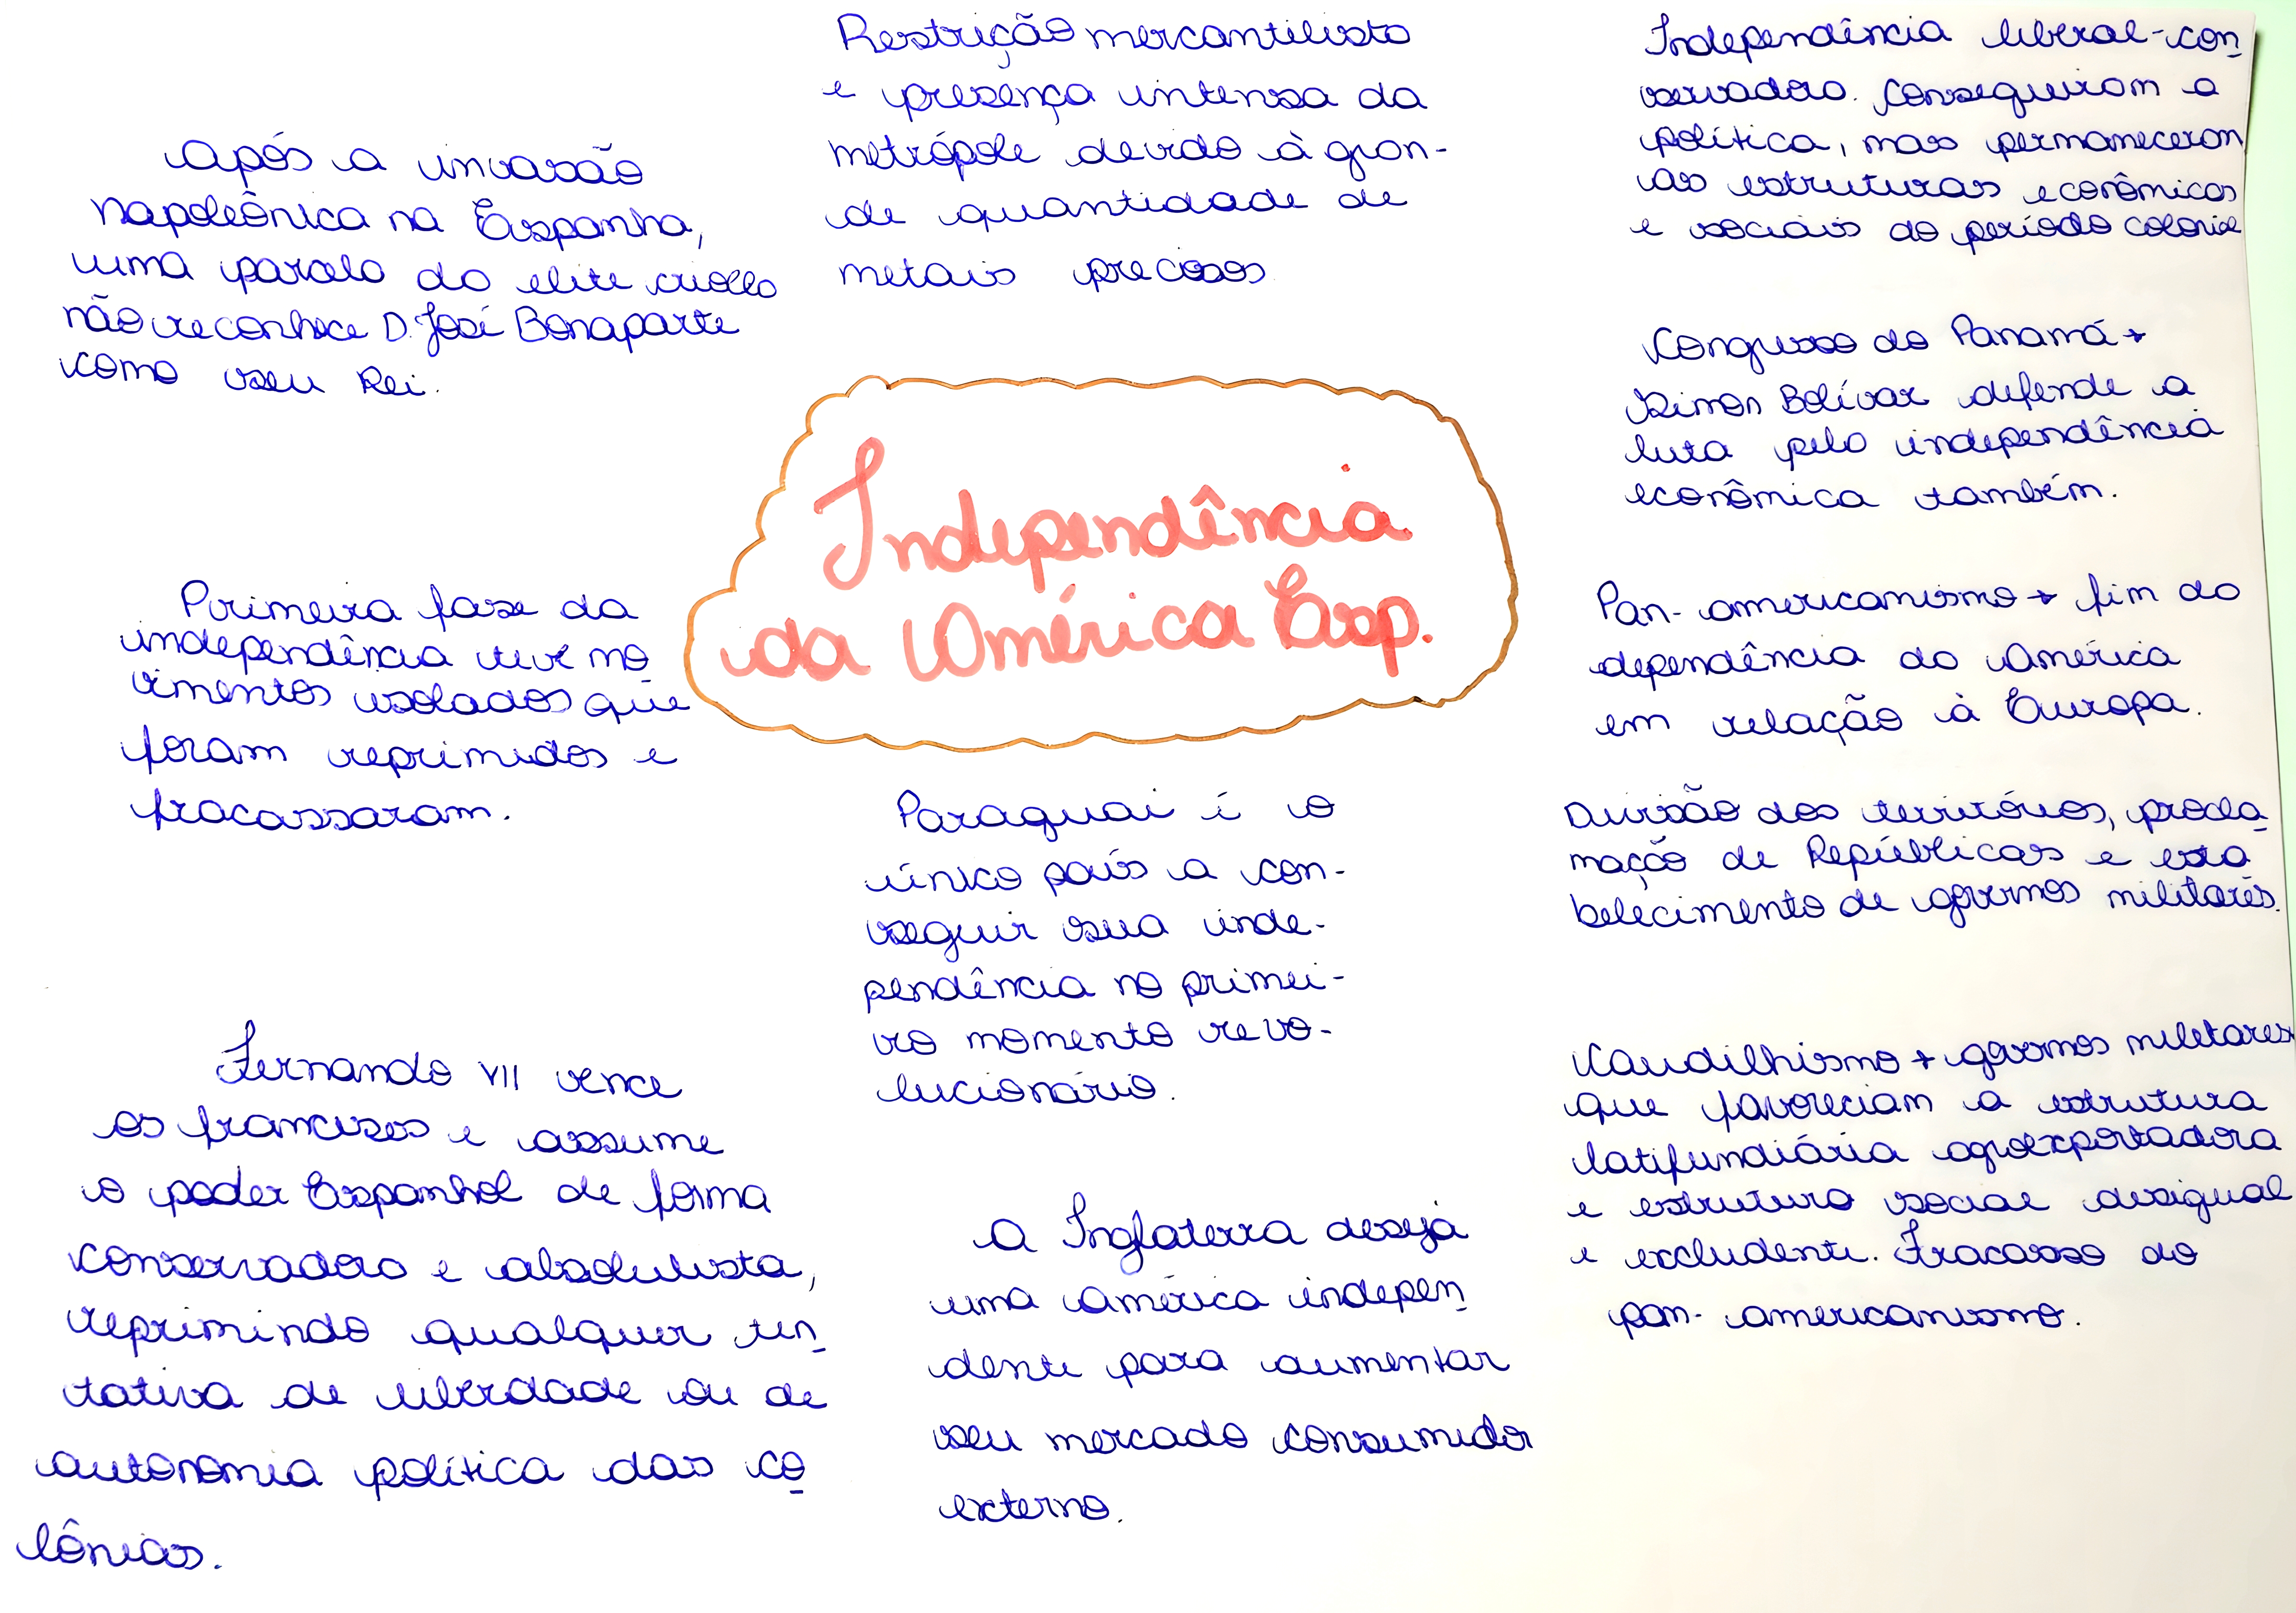 Após a invasão
napoleônica na Espanha,
uma parcela da elite criolla
não reconhece D. José Bonaparte
como seu Rei.
Primeira fase da
independência teve mo
vimentos isolados que
foram reprimidos e
fracassaram.
Fernando VII vence
os franceses e assume
o poder Espanhol de forma
conservadora e absolutista,
reprimindo qualquer ten
tativa de liberdade ou de
autonomia política das co
lônias.
Restrição mercantilista
e presença intensa da
metrópole devido à gran-
de quantidade de
metais preciosos
Independência
da América Esp.
Paraguai é o
único país a con-
seguir sua inde-
pendência no primei-
ro momento revo-
lucionário.
A Inglaterra deseja
uma América indepen
dente para aumentar
seu mercado consumidor
externo.
Independência liberal-con
servadora. Conseguiram a
política, mas permaneceram
as estruturas econômicas
e sociais do período colonial
Congresso do Panamá →
Simon Bolívar defende a
luta pela independência
econômica também.
Pan-americanismo → fim da
dependência da América
em relação à Europa.
Divisão dos territórios, procla
mação de Repúblicas e esta
belecimento de governos militares.
Caudilhismo → governos militares
que favoreciam a estrutura
latifundiária agroexportadora
e estrutura social desigual
e excludente. Fracasso do
pan-americanismo.